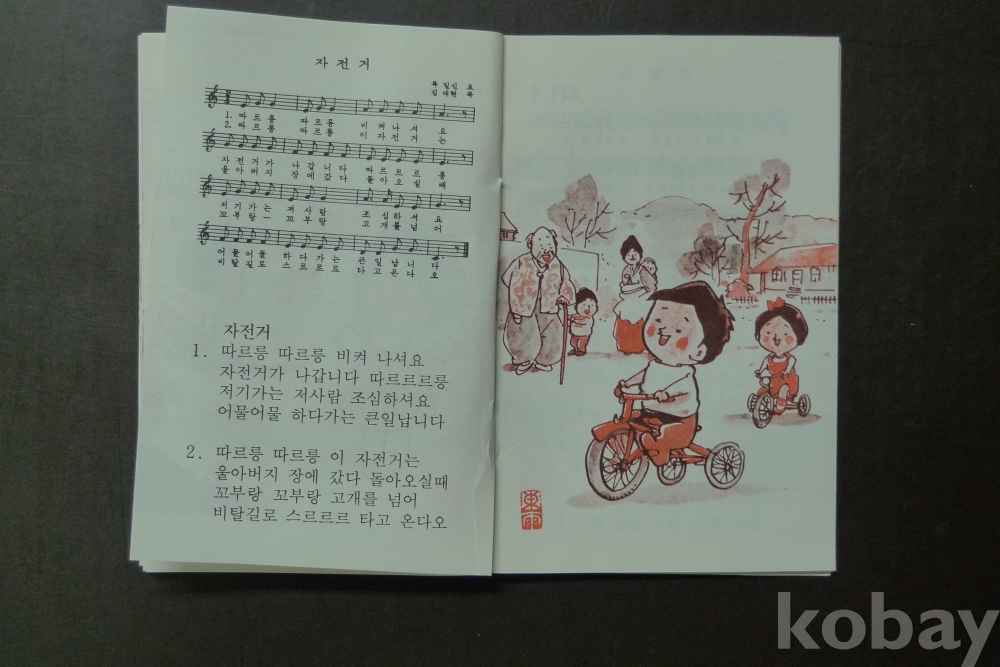 자 전 거
목 일신 요
김 대현 곡
1. 따르릉 따르릉 비켜나셔요
2. 따르릉 따르릉 이자전거는
자전거가 나갑니다 따르르르릉
울아버지 장에갔다 돌아오실때
저기가는 저사람 조심하셔요
꼬부랑ー 꼬부랑 고개를넘어
어물어물 하다가는 큰일납니다
비탈길로 스르르르 타고온다오
자전거
1. 따르릉 따르릉 비켜 나셔요
자전거가 나갑니다 따르르르릉
저기가는 저사람 조심하셔요
어물어물 하다가는 큰일납니다
2. 따르릉 따르릉 이 자전거는
울아버지 장에 갔다 돌아오실때
꼬부랑 꼬부랑 고개를 넘어
비탈길로 스르르르 타고 온다오
kobay